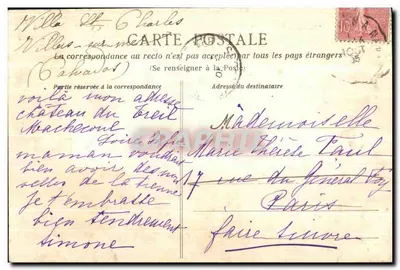 Villa St Charles
Villers-sur-mer
(Calvados)
CARTE POSTALE
La correspondance au recto n'est pas acceptée par tous les pays étrangers
(Se renseigner à la Poste)
Partie réservée à la correspondance
Adresse du destinataire
voilà mon adresse
château du Breil
Machecoul
maman voudrait
bien avoir des nou
velles de la tienne
je t'embrasse
bien tendrement
Simone
Mademoiselle
Marie Thérèse Paul
17 rue du Général Foy
Paris
faire suivre